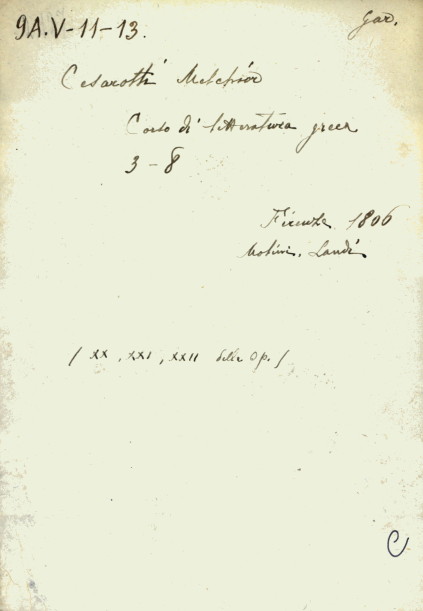 9A.V-11-13.
Gar.
Cesarotti Melchior
Corso di letteratura greca
3-8
Firenze 1806
Molini. Landi
( XX, XXI, XXII delle Op. )
C